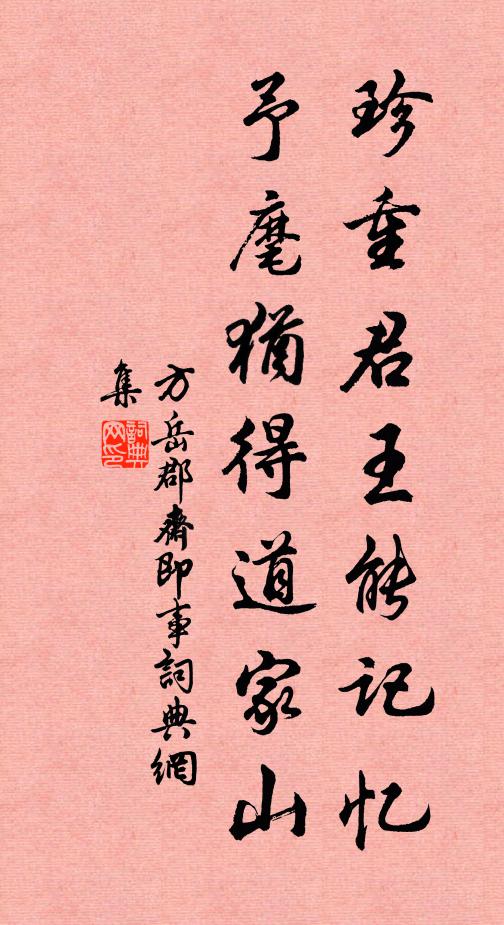 珍重君王能记忆
予麾犹得道家山
方岳郡斋即事詞典網
集
詞典网印